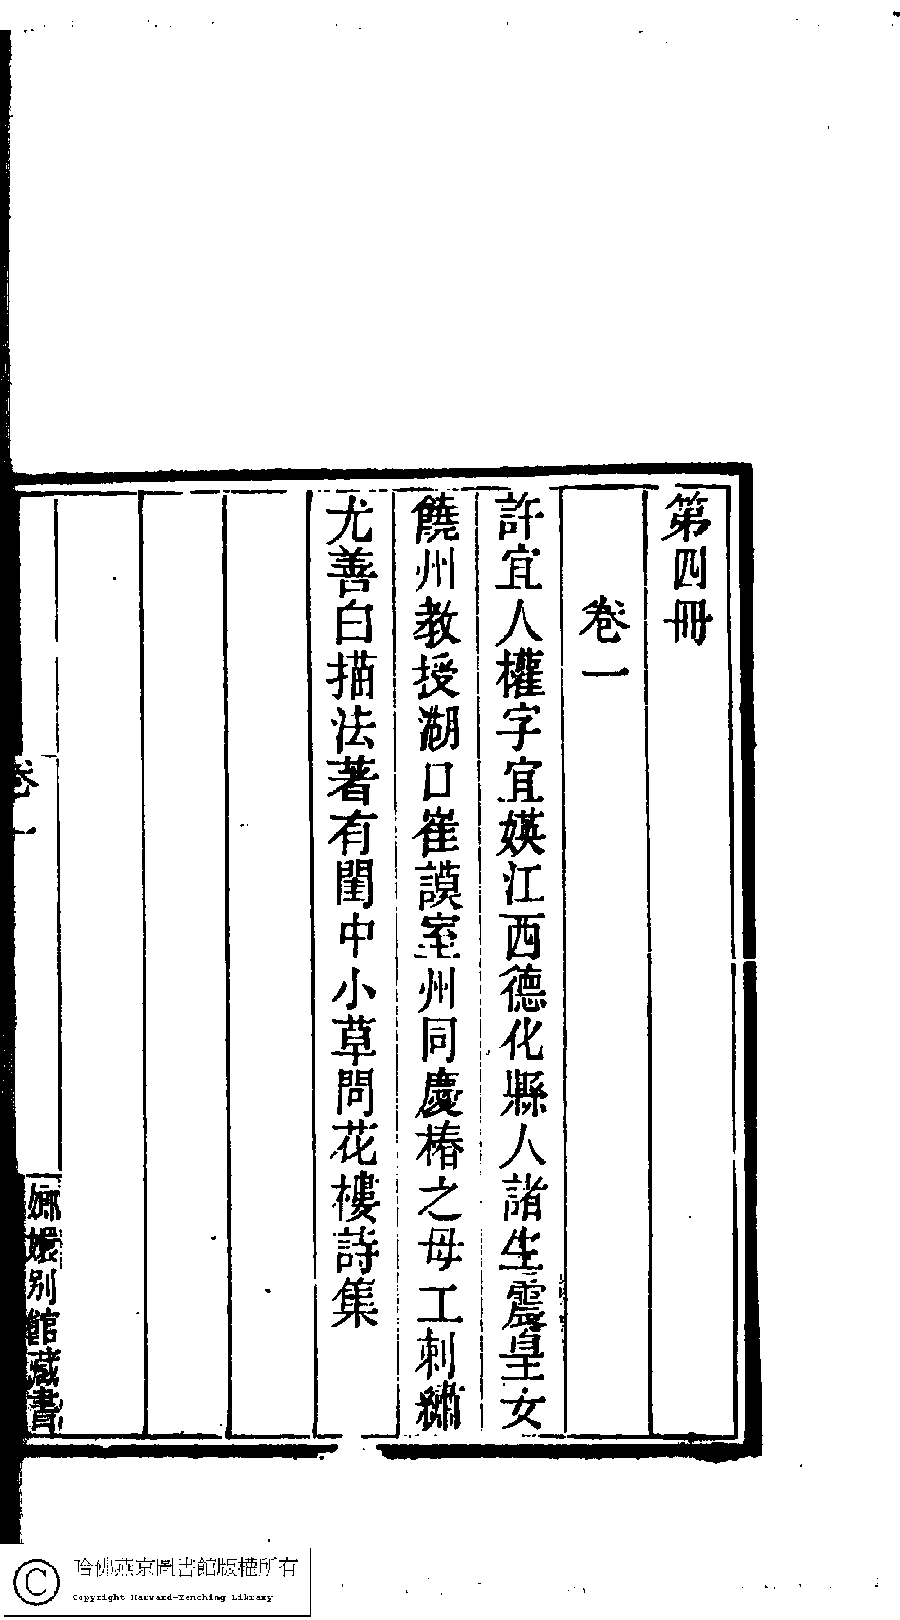 第四冊
卷一
許宜人權字宜媖江西德化縣人諸生震皇女
饒州教授湖口崔謨室州同慶椿之母工刺繡
尤善白描法著有閨中小草問花樓詩集
卷一
嫏嬛別館藏書
哈佛燕京圖書館版權所有
Copyright Harvard-Yenching Library